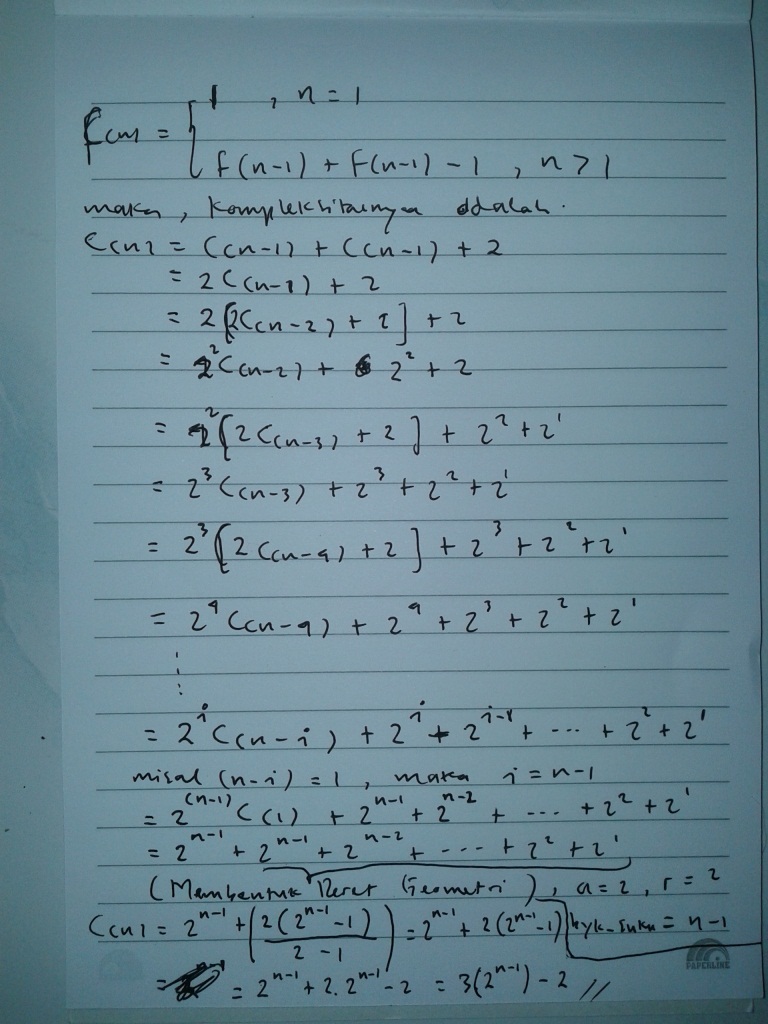 1 , n = 1
f(n) = {
f(n-1) + f(n-1) - 1 , n > 1
maka , kompleksitasnya adalah .
C(n) = C(n-1) + C(n-1) + 2
= 2C(n-1) + 2
= 2[2C(n-2) + 2] + 2
= 2²C(n-2) + 2² + 2
= 2²[2C(n-3) + 2] + 2² + 2¹
= 2³C(n-3) + 2³ + 2² + 2¹
= 2³[2C(n-4) + 2] + 2³ + 2² + 2¹
= 2⁴C(n-4) + 2⁴ + 2³ + 2² + 2¹
⋮
= 2ⁱC(n-i) + 2ⁱ + 2ⁱ⁻¹ + ... + 2² + 2¹
misal (n-i) = 1 , maka i = n-1
= 2⁽ⁿ⁻¹⁾C(1) + 2ⁿ⁻¹ + 2ⁿ⁻² + ... + 2² + 2¹
= 2ⁿ⁻¹ + 2ⁿ⁻¹ + 2ⁿ⁻² + ... + 2² + 2¹
(Membentuk Deret Geometri) , a = 2 , r = 2
byk-suku = n-1
C(n) = 2ⁿ⁻¹ + (2(2ⁿ⁻¹-1) / 2-1) = 2ⁿ⁻¹ + 2(2ⁿ⁻¹-1)
= 2ⁿ⁻¹ + 2.2ⁿ⁻¹ - 2 = 3(2ⁿ⁻¹) - 2 //
PAPERLINE